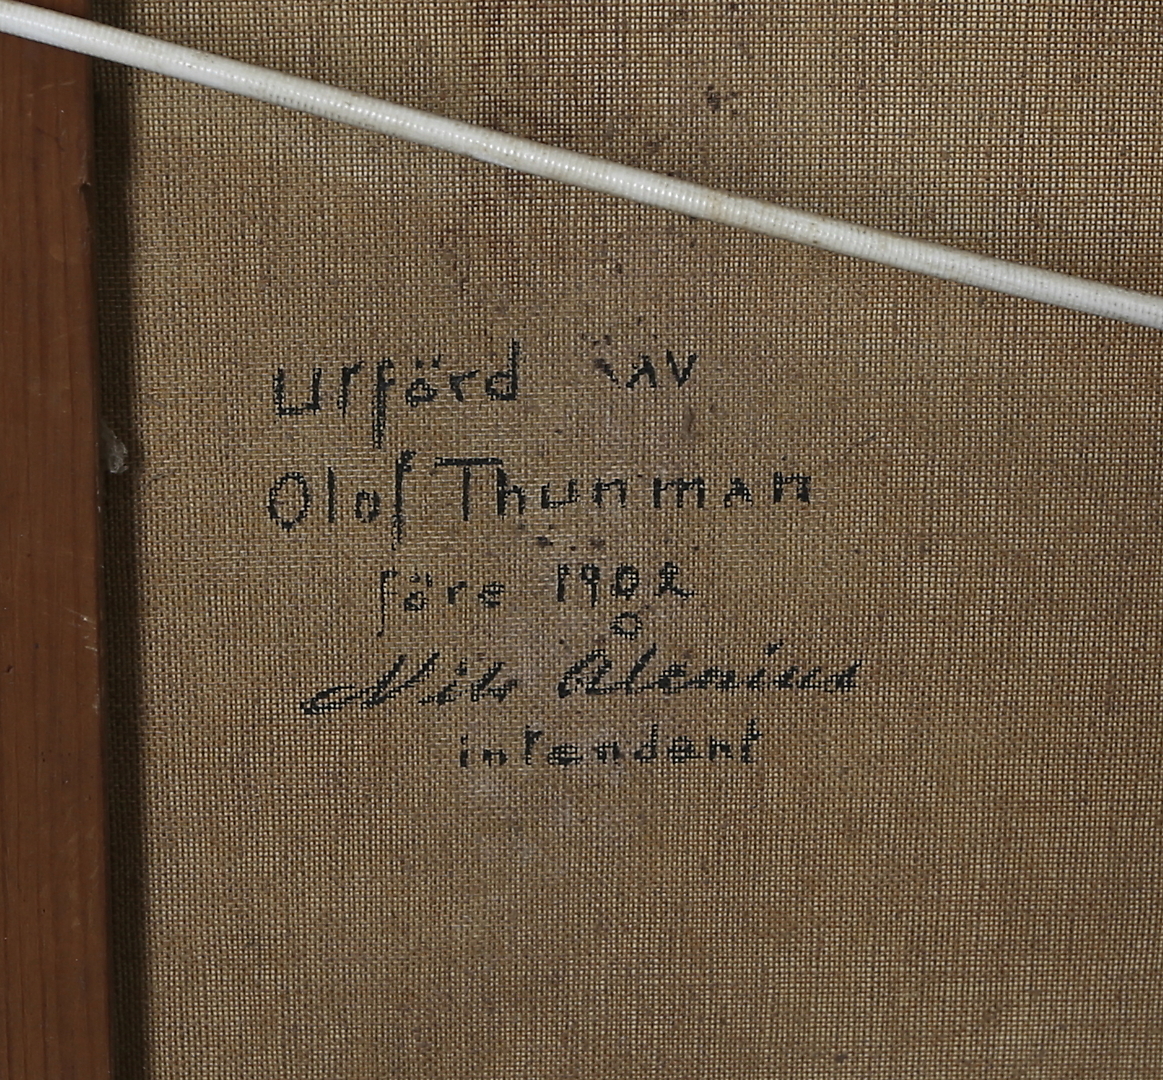 Utförd AV
Olof Thunman
före 1902
Nils Ålenius
intendent